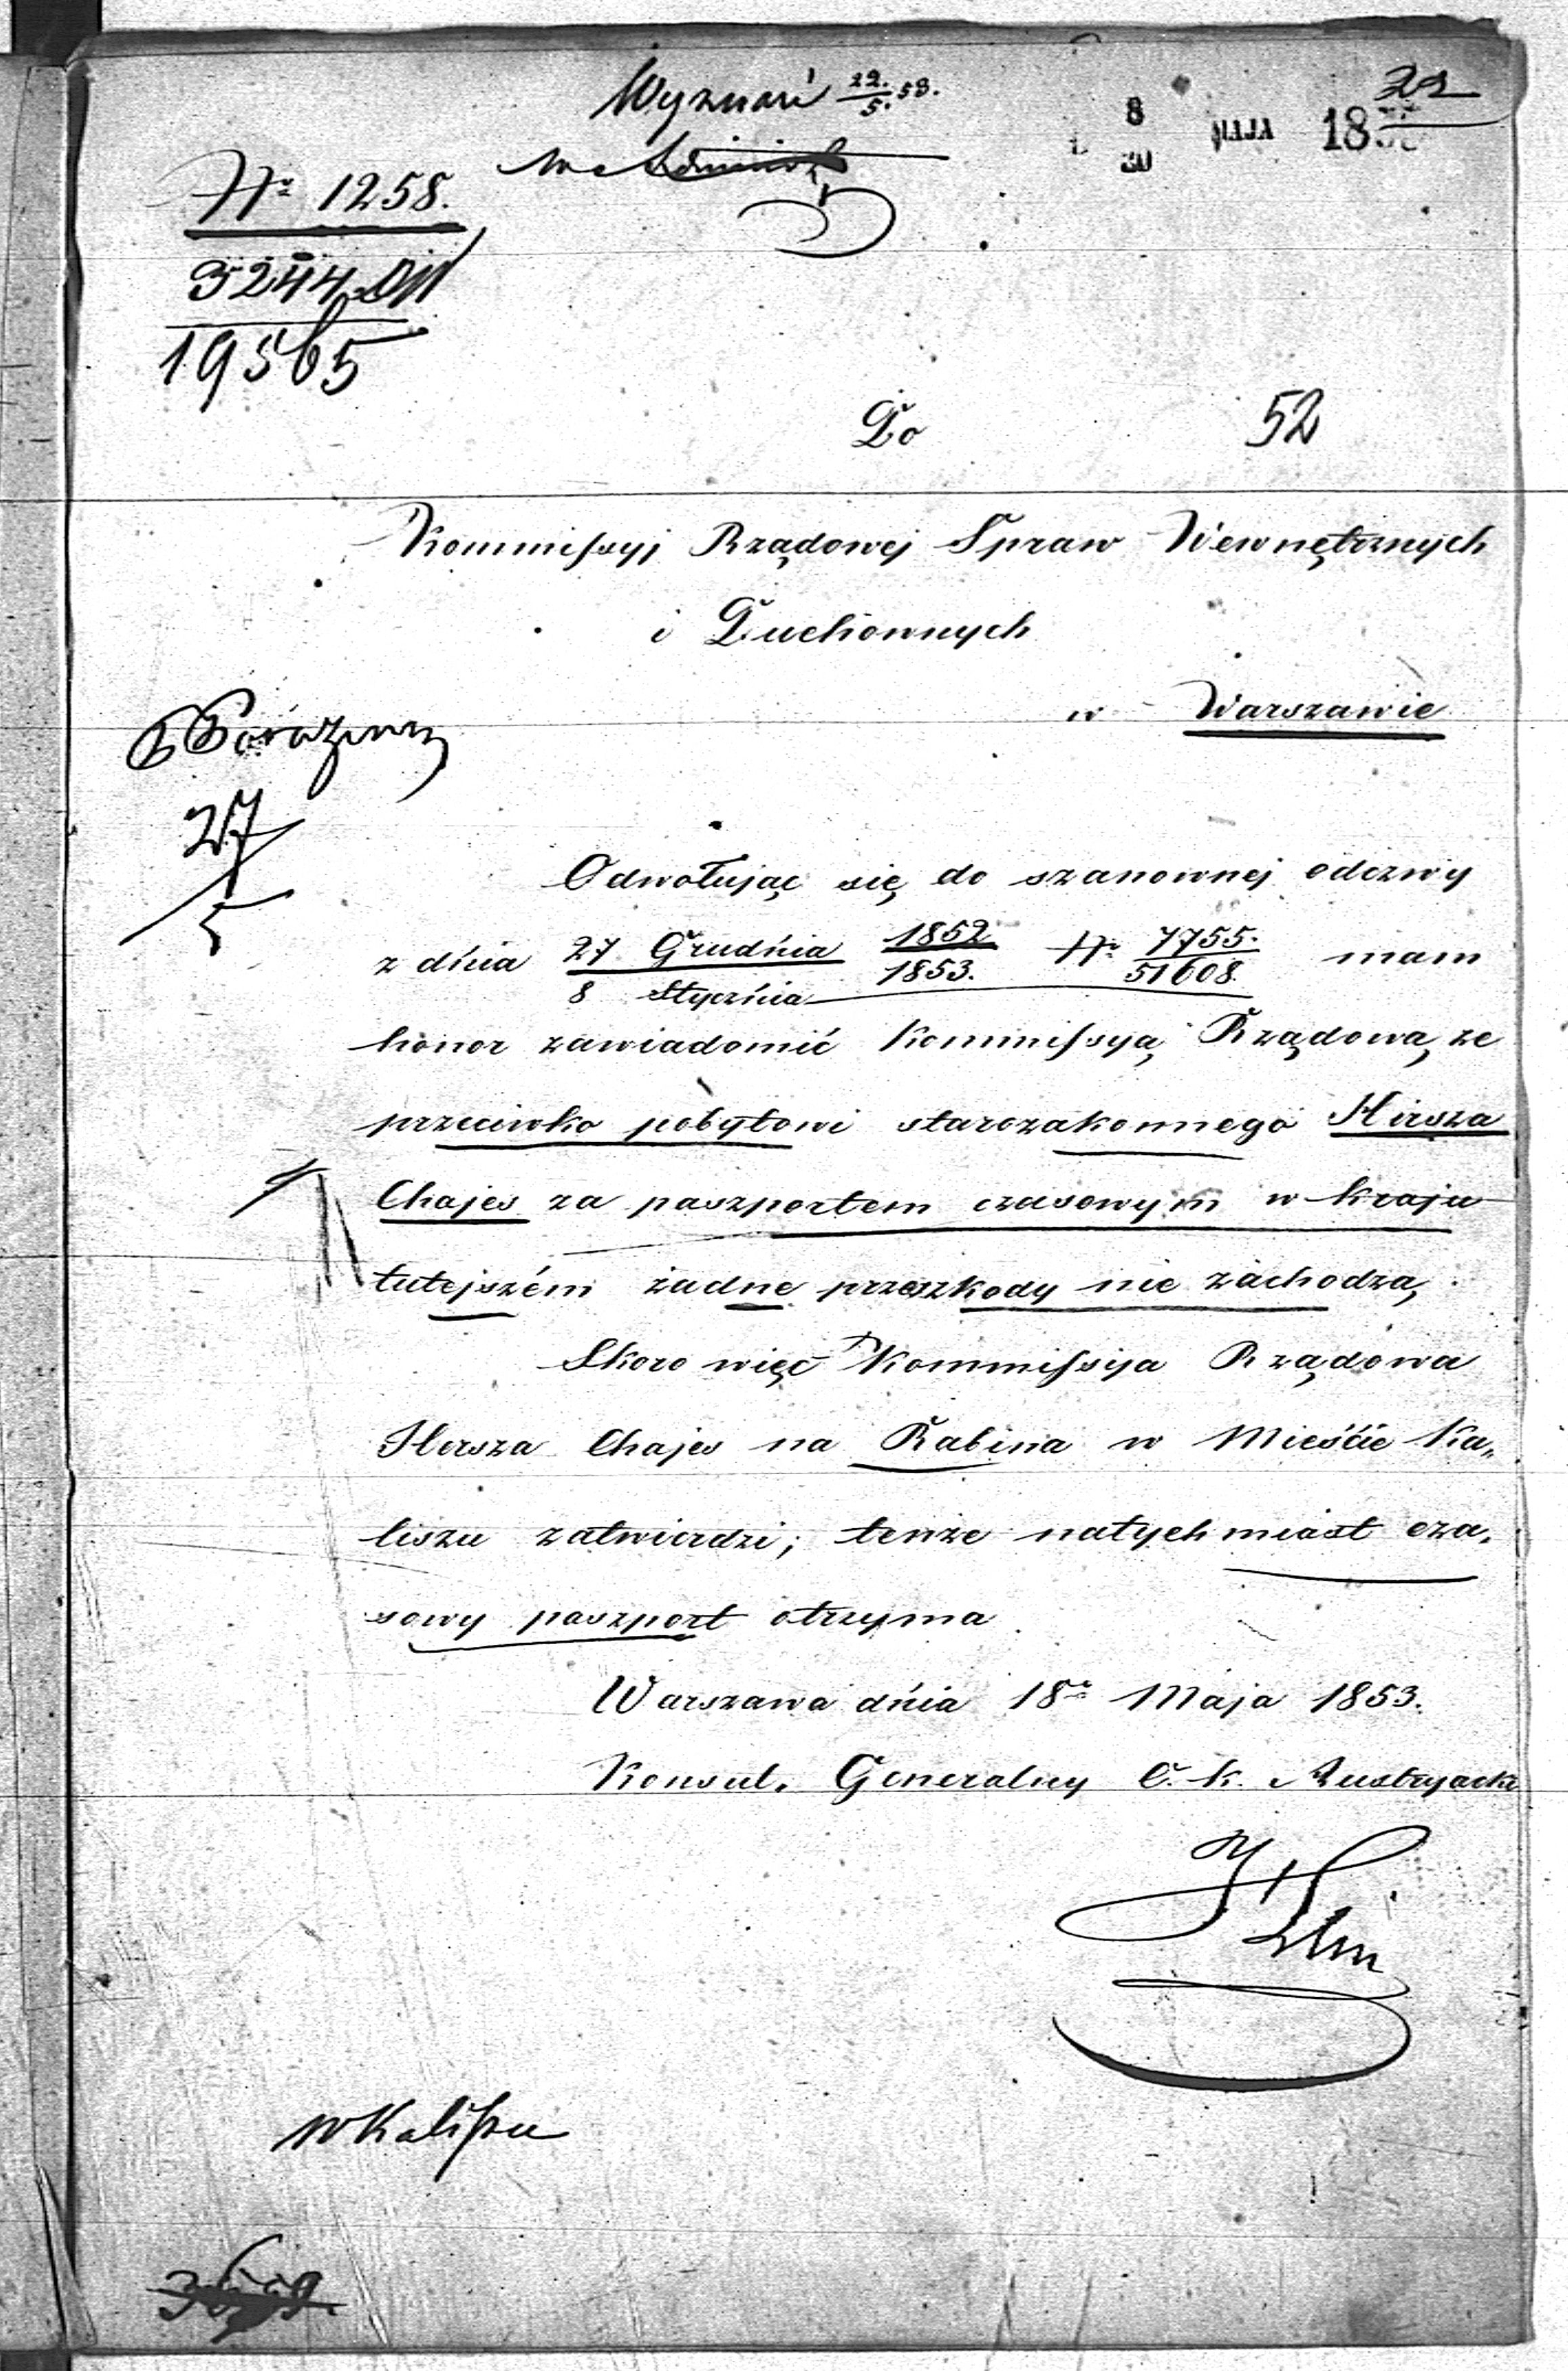 Wyznań 22./5. 53.
8 MAJA 18
20
22
№ 1258.
3244
19565
Do
52
Kommissyj Rządowej Spraw Wewnętrznych
i Duchownych
w Warszawie
27
5
Odwołując się do szanownej odezwy
z dńia 27 Grudńia/8 Stycźnia 1852/1853. № 7755./51608. mam
honor zawiadomić Kommissyą Rządową, ze
przeciwko pobytowi starozakonnego Hirsza
Chajes za paszportem czasowym w kraju
tutejszém żadne przeszkody nie zachodzą.
Skoro więc Kommissyja Rządowa
Hersza Chajes na Rabina w Mieśćie Ka„
liszu zatwierdzi; tenże natychmiast cza„
sowy paszport otrzyma.
Warszawa dńia 18º Maja 1853.
Konsul. Generalny C. K. Austryacki
w Kaliszu